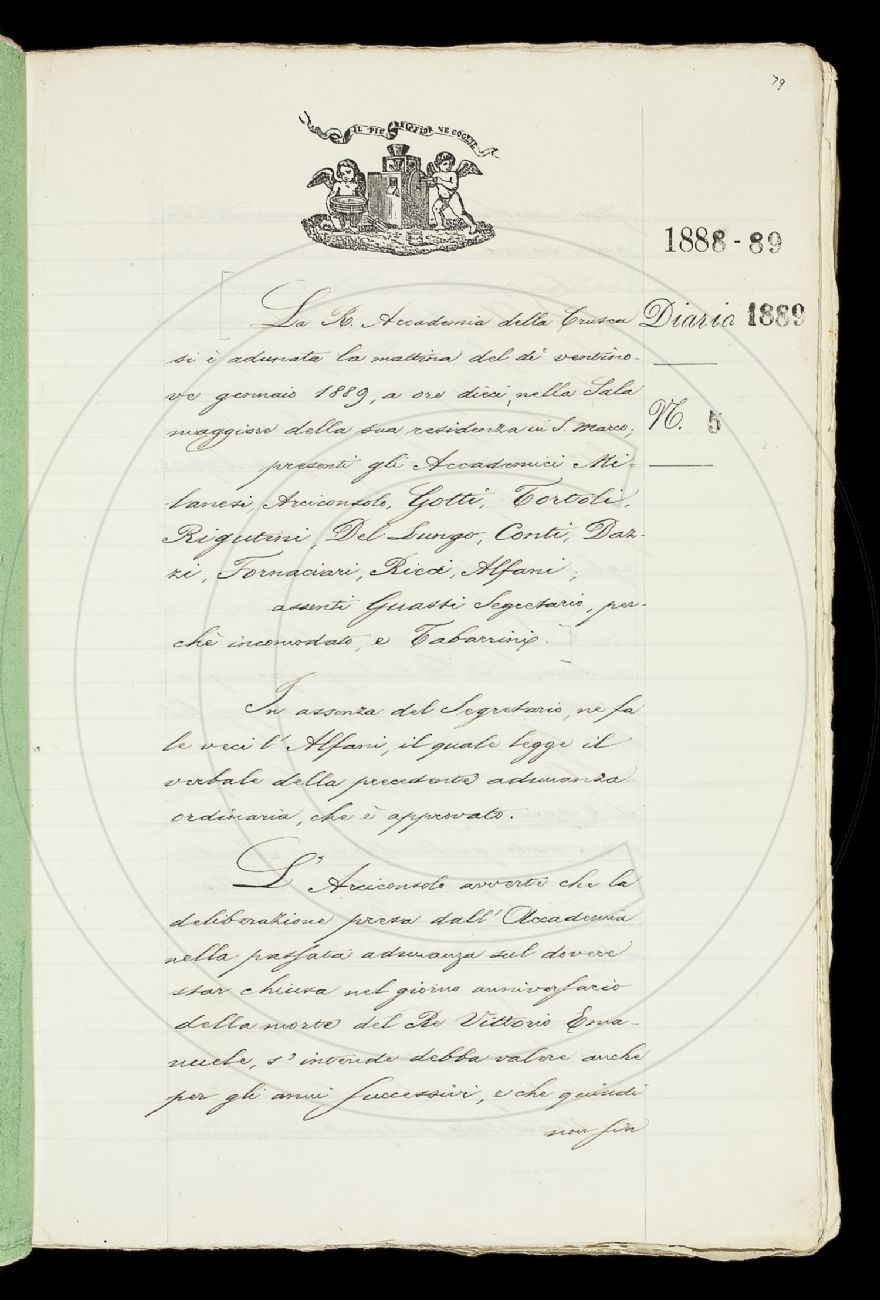 79
IL PIÙ BEL FIOR NE COGLIE
1888-89
Diario 1889
N. 5
La R. Accademia della Crusca
si è adunata la mattina del dì ventino-
ve gennaio 1889, a ore dieci, nella Sala
maggiore della sua residenza in S. Marco;
presenti gli Accademici Mi-
lanesi, Arciconsolo, Gotti, Tortoli,
Rigutini, Del Lungo, Conti, Daz-
zi, Fornaciari, Ricci, Alfani;
assenti Guasti Segretario, per-
chè incomodato, e Tabarrini.
In assenza del Segretario, ne fa
le veci l'Alfani, il quale legge il
verbale della precedente adunanza
ordinaria, che è approvato.
L'Arciconsolo avverte che la
deliberazione presa dall'Accademia
nella passata adunanza sul dovere
star chiusa nel giorno anniversario
della morte del Re Vittorio Ema-
nuele, s'intende debba valere anche
per gli anni successivi, e che quindi
non sia